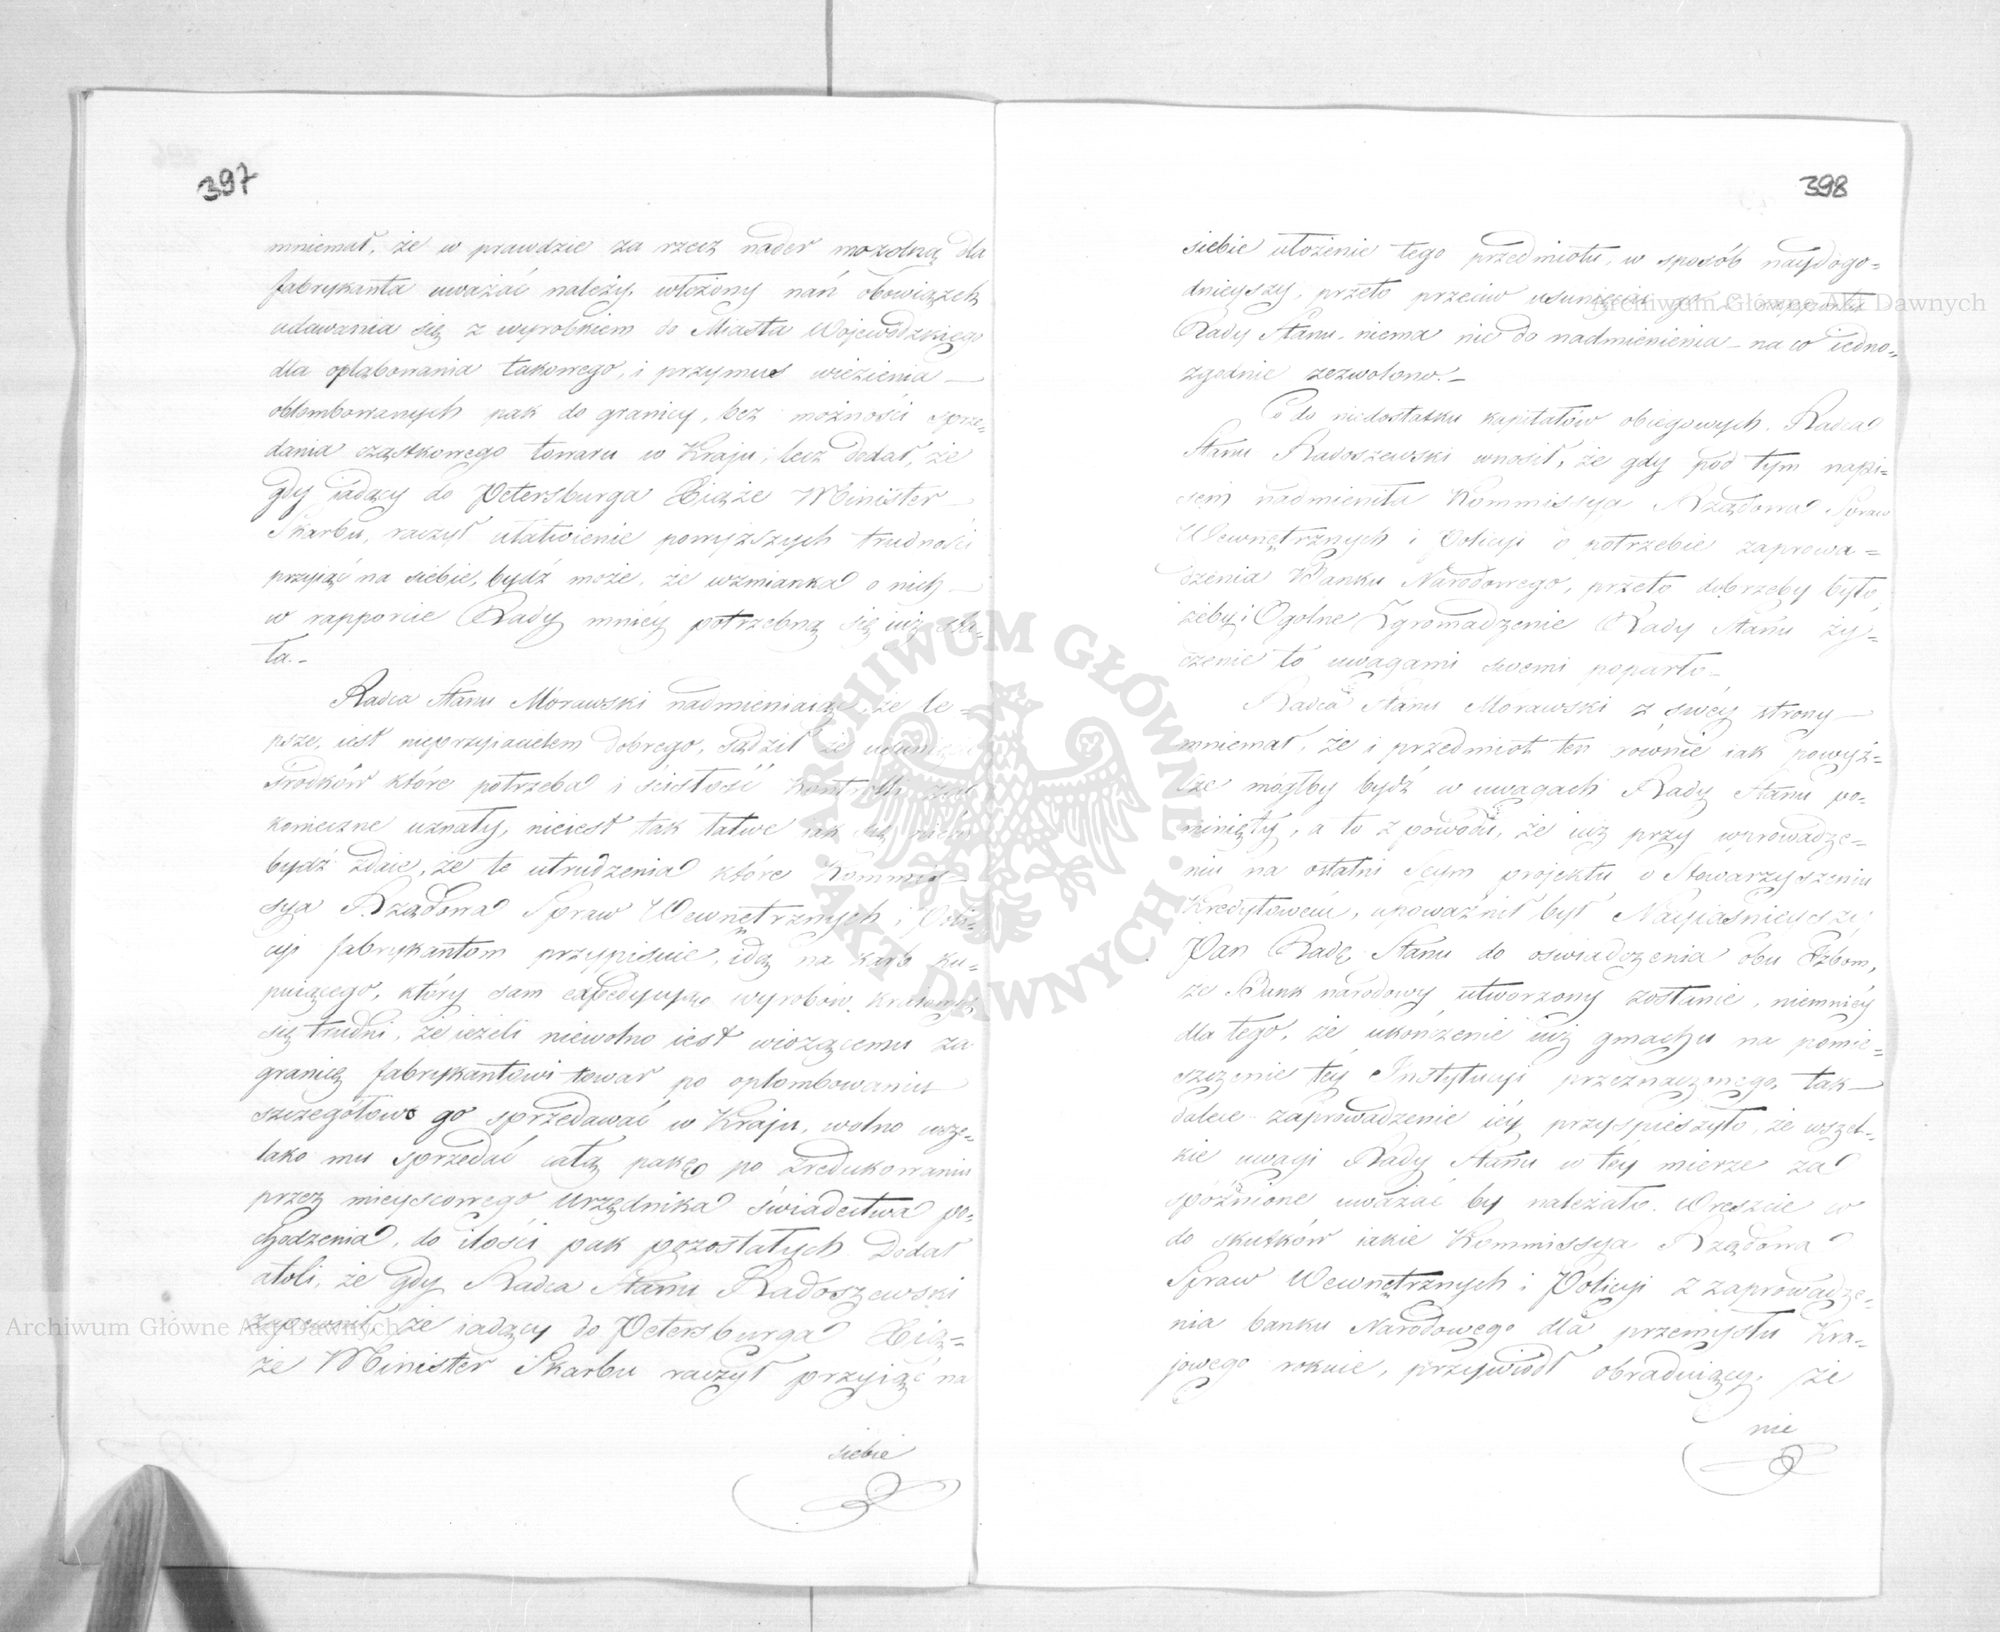 397
mniemał, że w prawdzie za rzecz nader mozolną dla
fabrykanta uważać należy, włożony nań obowiązek
udawania się z wyrobniem do Miasta Wojewódzkiego
dla opląbowania takowego, i przymus wiezienia —
obłombowanych pak do granicy, bez możności sprze-
dania cząstkowego towaru w Kraju; lecz dodał, że
gdy iadący do Petersburga Xiąże Minister —
Skarbu, raczył ułatwienie powyższych trudności
przyiąć na siebie, bydź może, że wzmianka o nich —
w rapporcie Rady mniey potrzebną się iuż sta-
ła.-
Radca Stanu Morawski nadmieniaiąc, że le-
psze, iest nieprzyiacielem dobrego, sądził że usunięcie
środków które potrzeba i ścisłość Kontrolli za
konieczne uznały, nieiest tak łatwe iak się
bydź zdaie, że te utrudzenia które Kommis-
sya Rządowa Spraw Wewnętrznych i Poli-
cyi fabrykantom przypisuie, idą na karb ku-
puiącego, który sam expedycyą wyrobów kraiowych
się trudni, że ieżeli niewolno iest wiozącemu za
granicę fabrykantowi towar po oplombowaniu
szczegółowo go sprzedawać w Kraju, wolno wsze-
lako mu sprzedać całą pakę po zredukowaniu
przez mieyscowego Urzędnika świadectwa po-
chodzenia, do ilości pak pozostałych. Dodał
atoli, że gdy Radca Stanu Radoszewski
zapewnił, że iadący do Petersburga Xią-
że Minister Skarbu raczył przyiąć na
siebie
398
siebie ułożenie tego przedmiotu, w sposób naydogo-
dnieyszy, przeto przeciw usunięciu go z rapportu
Rady Stanu, niema nic do nadmienienia — na co iedno-
zgodnie zezwolono.-
Co do niedostatku kapitałów obiegowych, Radca
Stanu Radoszewski wnosił, że gdy pod tym napi-
sem nadmieniła Kommissya Rządowa Spraw
Wewnętrznych i Policyi o potrzebie zaprowa-
dzenia Banku Narodowego, przeto dobrzeby było,
żeby i Ogólne Zgromadzenie Rady Stanu ży-
czenie to uwagami swemi poparło.-
Radca Stanu Morawski z swéy strony —
mniemał, że i przedmiot ten równie iak powyż-
sze mógłby bydź w uwagach Rady Stanu po-
minięty, a to z powodu, że iuż przy wprowadze-
niu na ostatni Seym projektu o Stowarzyszeniu
Kredytowém, upoważnił był Nayiaśnieyszy
Pan Radę Stanu do oświadczenia obu Izbom,
że Bank narodowy utworzony zostanie, niemniéy
dla tego, że ukończenie iuż gmachu na pomie-
szczenie téy Instytucyi przeznaczonego, tak —
dalece zaprowadzenie iéy przyspieszyło, że wszel-
kie uwagi Rady Stanu w téy mierze za
spóźnione uważać by należało. Wreszcie co
do skutków iakie Kommissya Rządowa
Spraw Wewnętrznych i Policyi z zaprowadze-
nia banku Narodowego dla przemysłu Kra-
jowego rokuie, przywiódł obraduiącym, że
nie
ARCHIWUM GŁÓWNE AKT DAWNYCH
Archiwum Główne Akt Dawnych
Archiwum Główne Akt Dawnych